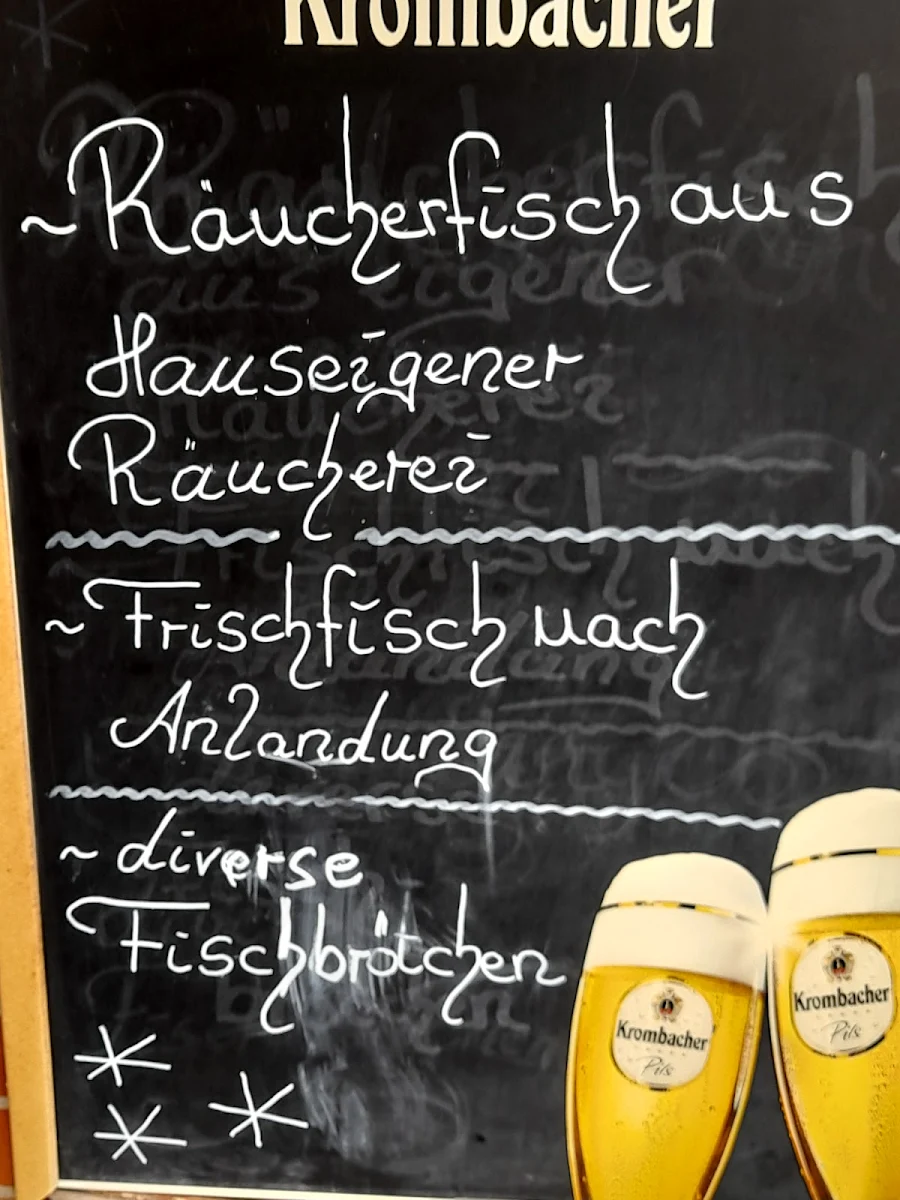 Krombacher
~ Räucherfisch aus
Hauseigener
Räucherei
~ Frischfisch nach
Anlandung
~ diverse
Fischbrötchen
Krombacher
Pils
Krombacher
Pils